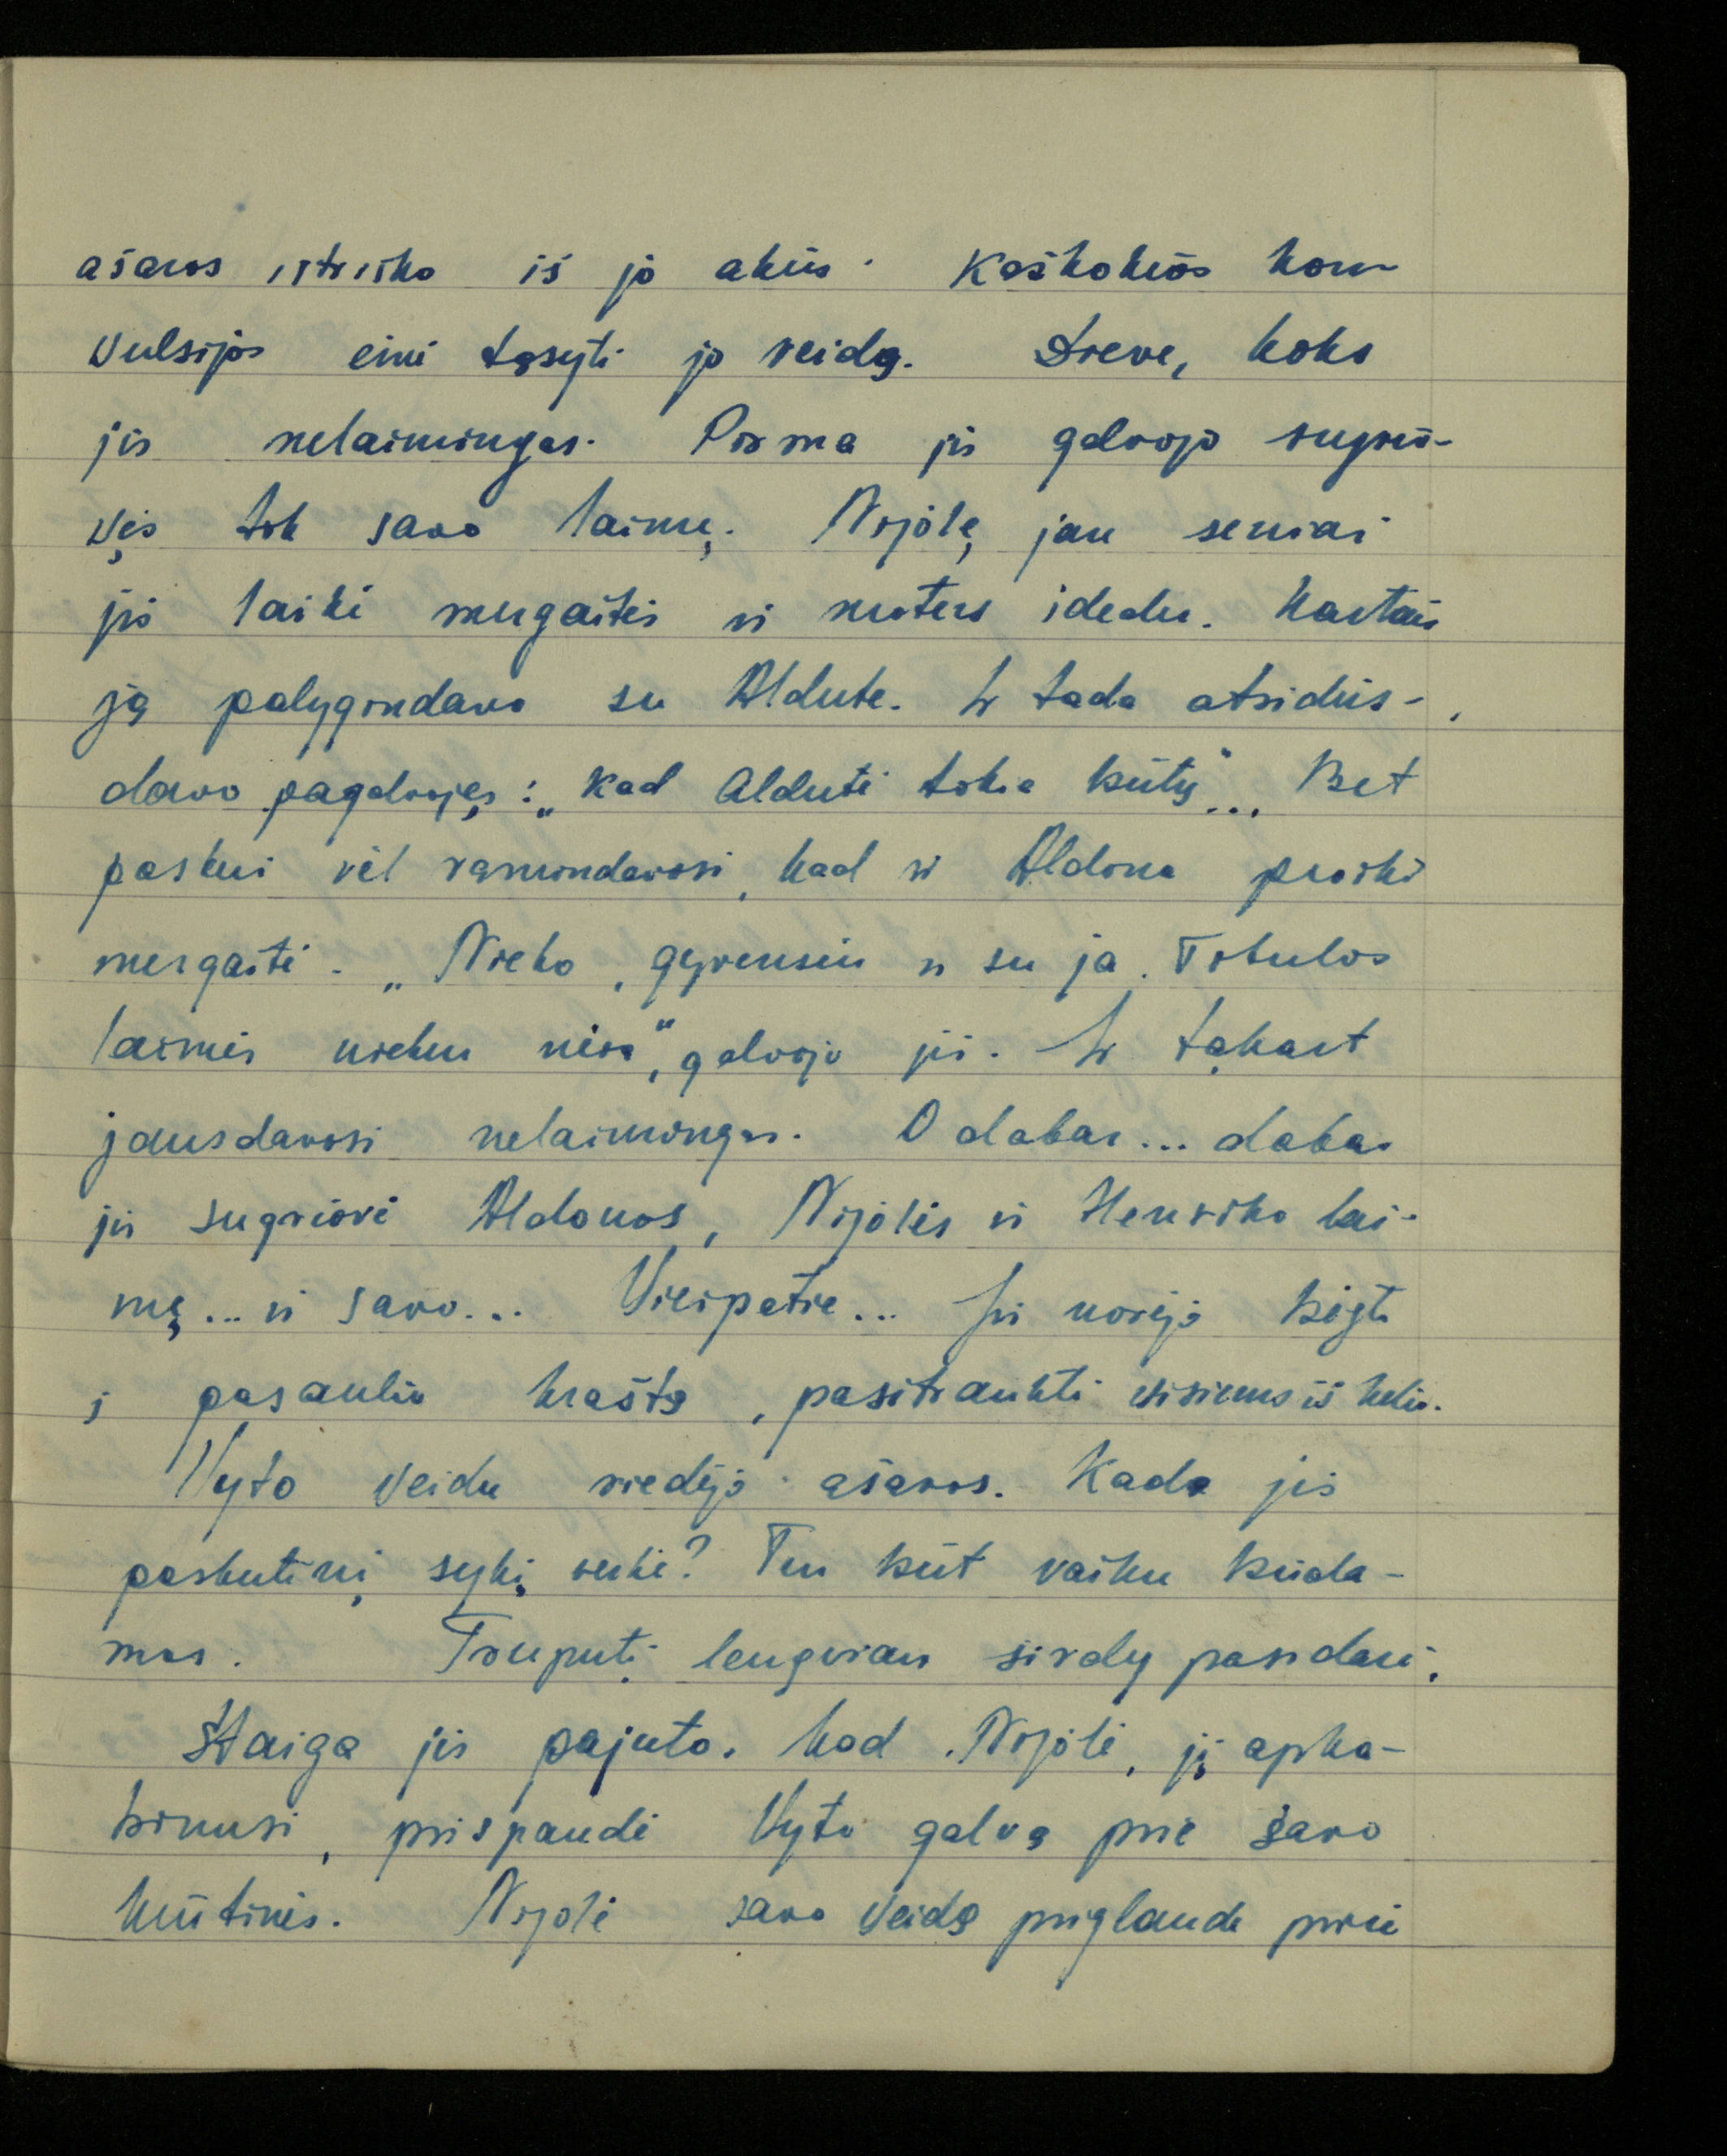 ašaros ištriško iš jo akių. Kažkokios kon-
vulsijos ėmė tąsyti jo veidą. Dieve, koks
jis nelaimingas. Pirma jis galvojo sugrio-
vęs tik savo laimę. Nijolę jau seniai
jis laikė mergaitės ir moters idealu. Kartais
ją palygindavo su Aldute. Ir tada atsidus-
davo pagalvojęs: „Kad Aldutė tokia būtų"... Bet
paskui vėl ramindavosi, kad ir Aldona puiki
mergaitė. „Nieko, gyvensiu ir su ja. Tobulos
laimės niekur nėra", galvojo jis. Ir tąkart
jausdavosi nelaimingas. O dabar... dabar
jis sugriovė Aldonos, Nijolės ir Henriko lai-
mę... ir savo... Viešpatie... Jis norėjo bėgti
į pasaulio kraštą, pasitraukti visiems iš kelio.
Vyto veidu riedėjo ašaros. Kada jis
paskutinį sykį verkė? Ten būt vaiku būda-
mas. Truputį lengviau širdy pasidarė.
Staiga jis pajuto, kad Nijolė, jį apka-
binusi, prispaudė Vyto galvą prie savo
krūtinės. Nijolė savo veidą priglaudė prie